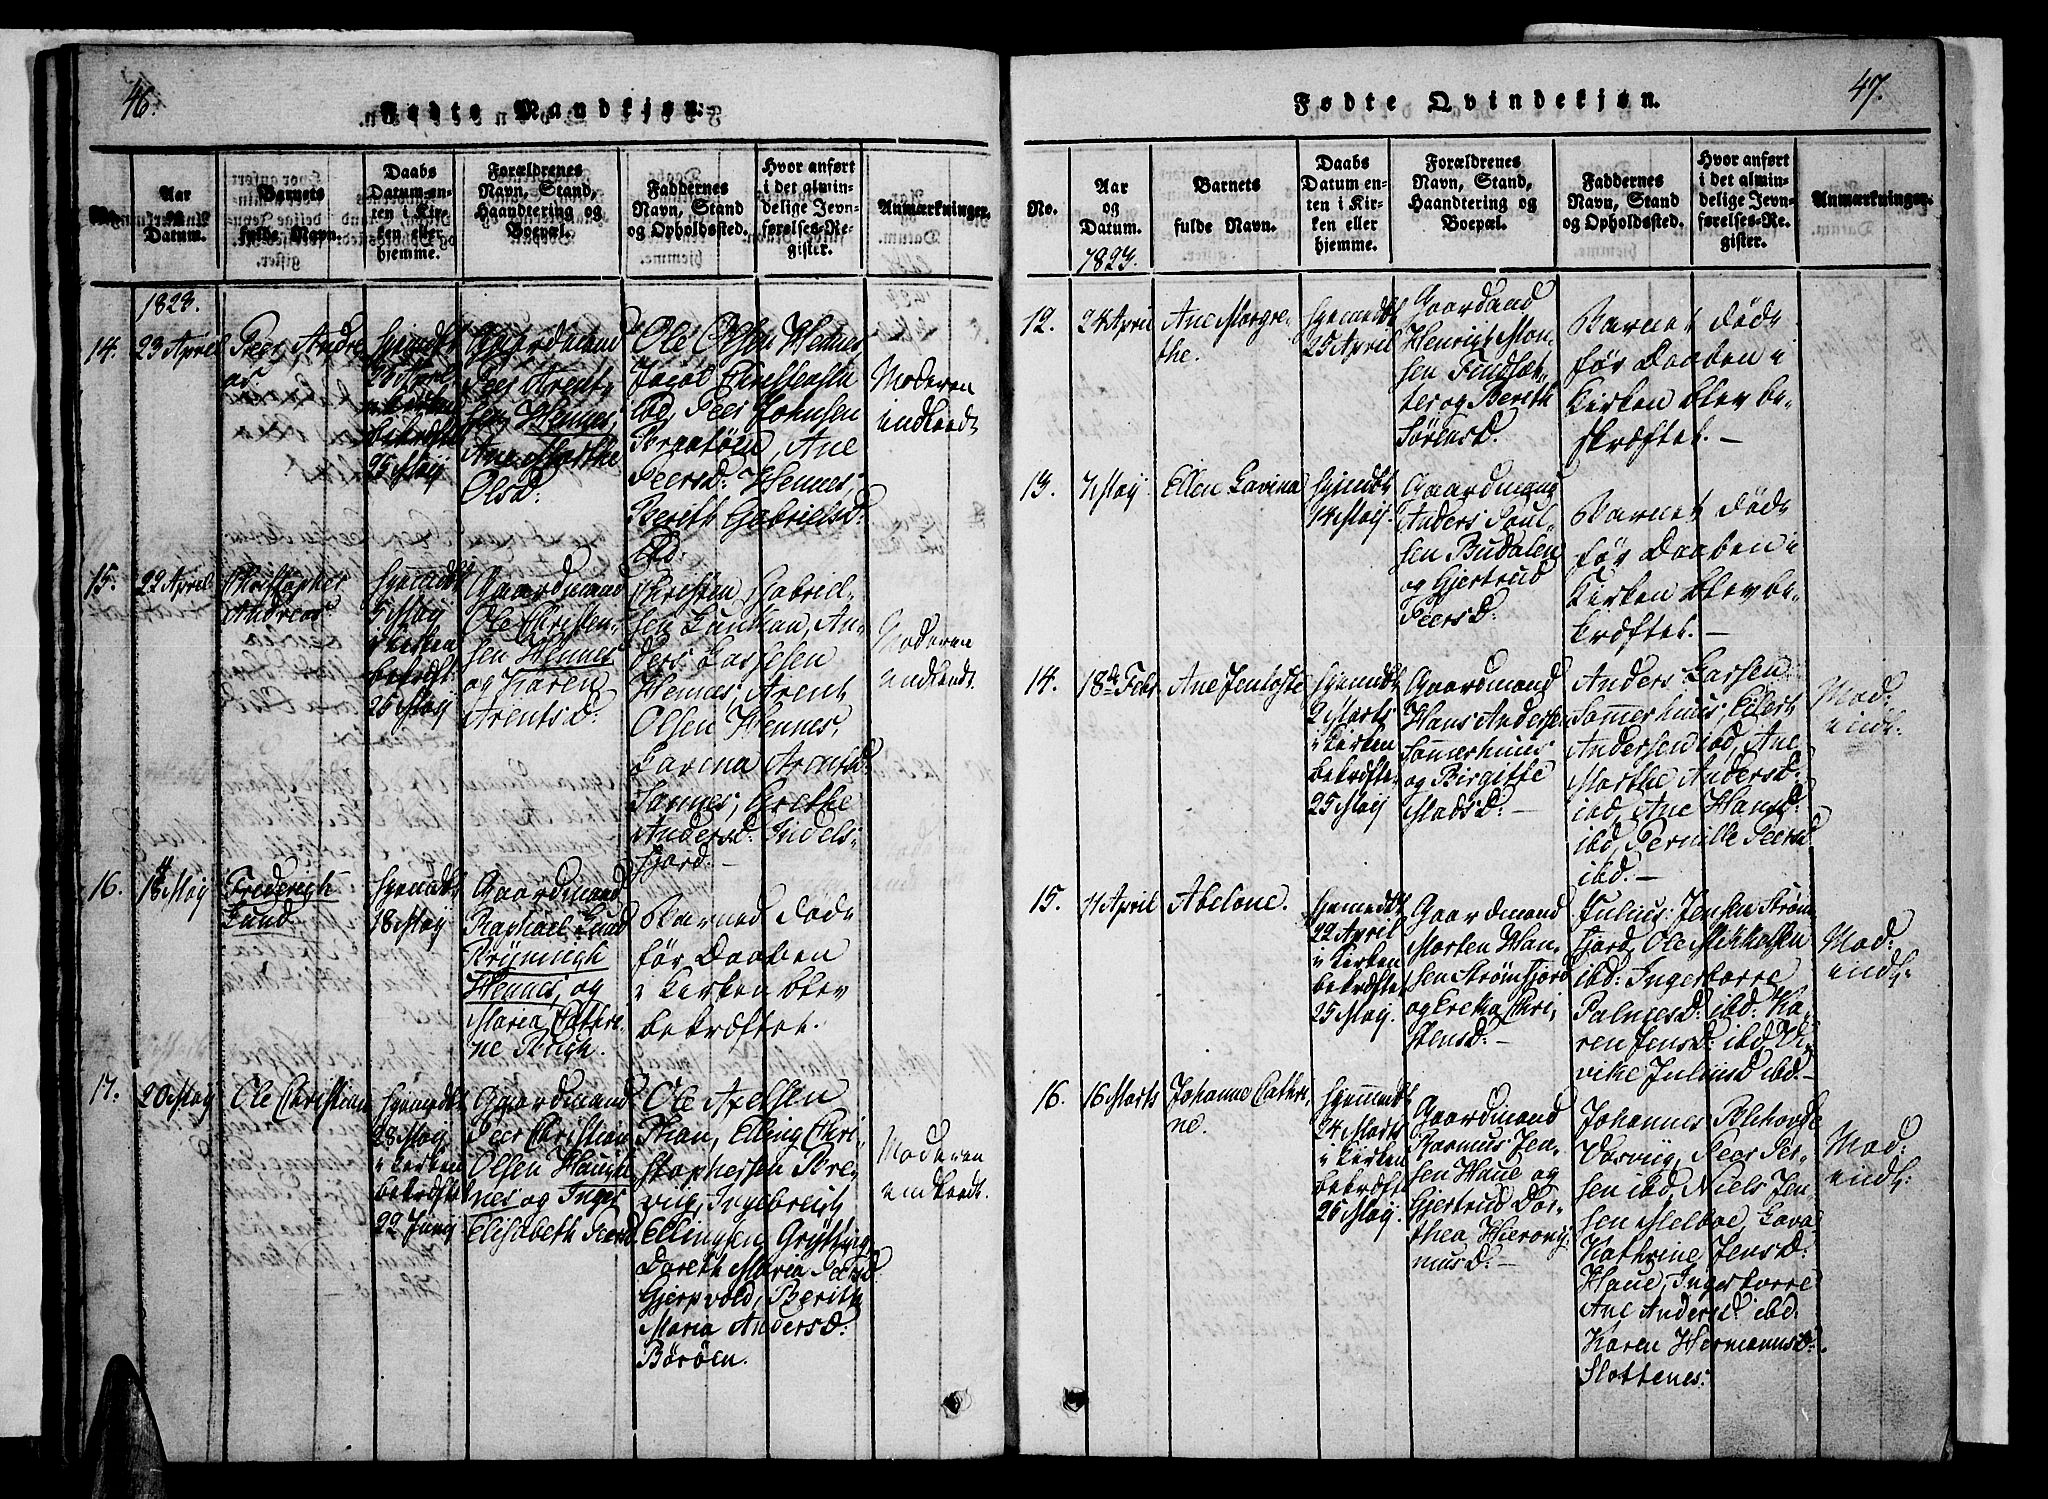 46.
Fødte Mandkjøn.
No.
Aar
og
Datum.
Barnets
fulde Navn.
Daabs
Datum en-
ten i Kir-
ken eller
hjemme.
Forældrenes
Navn, Stand,
Haandtering og
Boepæl.
Faddernes
Navn, Stand
og Opholdssted.
Hvor anført
i det almin-
delige Jevn-
førelses-Re-
gister.
Anmærkninger.
1823.
14.
23 April
Peer Andre
as.
hjemdt
i Kirken
bekræft
25 Maij
Gaardmand
Peer Arent-
sen Hennes,
Ane Marthe
Olsd:
Ole Olsen Hennes,
Jacob Christensen
ibd, Peer Johnsen
Ane
Peersd: Hennes,
Bereth Gabrielsd:
ibd:
Moderen
indledt
15.
22 April
Christopher
Andreas
hjemdt
5 Maij
i Kirken
bekræft:
25 Maij
Gaardmand
Ole Christen-
sen Hennes
og Karen
Arentsd:
Christen Gabriel-
sen Lunkan, An-
ders Lassesen
Hennes, Arent
Olsen Hennes,
Lavina Arentsd:
Sannes, Grethe
Andersd: Indels-
fjord.-
Moderen
indledt.
16.
Maij
Frederigh
Lund
hjemdt
18 Maij
Gaardmand
Raphael Lund
Hennes, og
Maria Cathri-
ne Kugh.
Barned døde
før Daaben
i Kirken blev
bekræftet.
17.
20 Maij
Ole Christian
hjemdt
28 Maij
i Kirken
bekræftet
22 Junij
Gaardmand
Peer Christian
Olsen Haugh-
nes og Inger
Elisabeth Peersd
Ole Axelsen
Than, Elling Chri-
stophersen Bre-
viig, Ingebregt
Ellingsen Grytting,
Doreth Maria Peersd:
Gjerpvold, Berith
Maria Andersd:
Börøen.
Moderen
indledt.
47.
Fødte Qvindekjøn.
No.
Aar
og
Datum.
Barnets
fulde Navn.
Daabs
Datum en-
ten i Kir-
ken eller
hjemme.
Forældrenes
Navn, Stand,
Haandtering og
Boepæl.
Faddernes
Navn, Stand
og Opholdssted.
Hvor anført
i det almin-
delige Jevn-
førelses-Re-
gister.
Anmærkninger.
1823.
12.
24 April
Ane Margre-
the.
hjemdt
25 April
Gaardmand
Henrich Mon-
sen Findslet-
ter og Bereth
Sørensd.
Barnet døde
før Daaben i
Kirken blev be-
kræftet.-
13.
7 Maij
Ellen Lavina
hjemdt
14 Maij.
Gaardmand
Anders Poul-
sen Budalen
og Gjertrud
Peersd.
Barnet døde
før Daaben i
Kirken blev be-
kræftet.-
14.
18de Febr
Ane Jentofte
hjemdt
2 Marts
i Kirken
bekræftet
25 Maij
Gaardmand
Hans Anderse
Sommerhuus
og Birgitte
Madsd:-
Anders Larsen
Sommerhuus, Edert
Andersen ibd, Ane
Marthe Andersd:
ibd, Ane Hansd:
ibd, Pernille Peersd
ibd.-
Mod:
indl:
15.
7 April
Abelone.
hjemdt
22 April
i Kirken
bekræftet
25 Maij.
Gaardmand
Morten Han-
sen Strømfjord
og Ereka Chri-
stensd:-
Julius Jensen Strøm
fjord, Ole Mikkelsen
ibd: Ingeborre
Palnesd: ibd: Ka-
ren Jensd: ibd,
vike Juliusd ibd.-
Mod:
indl:
16.
16 Marts
Johanne Cathri-
ne.
hjemdt
24 Marts
i Kirken
bekræftet
26 Maij.
Gaardmand
Rasmus Jen-
sen Haue og
Gjertrud Dor-
thea Hierony-
musd:-
Johannes
Peer Pet-
sen ibd, Niels Jen-
sen Melboe, Lava
Kathrine Jensd:
Haue, Ingeborre
Ane Andersd: ibd.
Karen Hermansd:
Slottenes:
Mod:
indl: